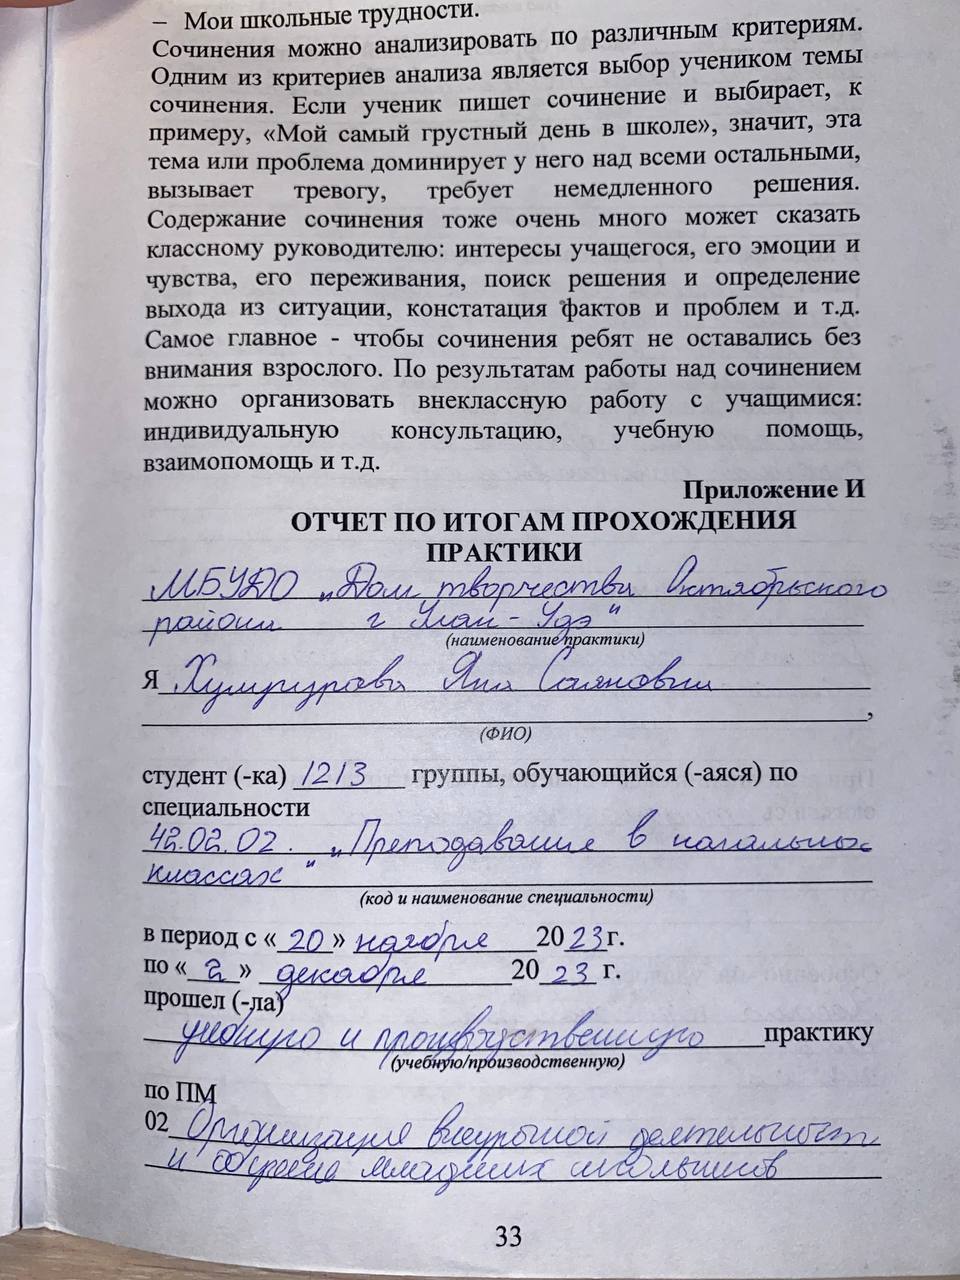 – Мои школьные трудности.
Сочинения можно анализировать по различным критериям.
Одним из критериев анализа является выбор учеником темы
сочинения. Если ученик пишет сочинение и выбирает, к
примеру, «Мой самый грустный день в школе», значит, эта
тема или проблема доминирует у него над всеми остальными,
вызывает тревогу, требует немедленного решения.
Содержание сочинения тоже очень много может сказать
классному руководителю: интересы учащегося, его эмоции и
чувства, его переживания, поиск решения и определение
выхода из ситуации, констатация фактов и проблем и т.д.
Самое главное - чтобы сочинения ребят не оставались без
внимания взрослого. По результатам работы над сочинением
можно организовать внеклассную работу с учащимися:
индивидуальную консультацию, учебную помощь,
взаимопомощь и т.д.
Приложение И
ОТЧЕТ ПО ИТОГАМ ПРОХОЖДЕНИЯ
ПРАКТИКИ
МБУДО „Дом творчества Октябрьского
района г Улан-Удэ"
(наименование практики)
Я Яна Саяновна
(ФИО)
студент (-ка) 1213 группы, обучающийся (-аяся) по
специальности
42.02.02. „Преподавание в начальных
классах"
(код и наименование специальности)
в период с « 20 » ноября 2023г.
по « 2 » декабря 20 23 г.
прошел (-ла)
учебную и производственную практику
(учебную/производственную)
по ПМ
02 Организация внеурочной деятельност
и младших школьников
33